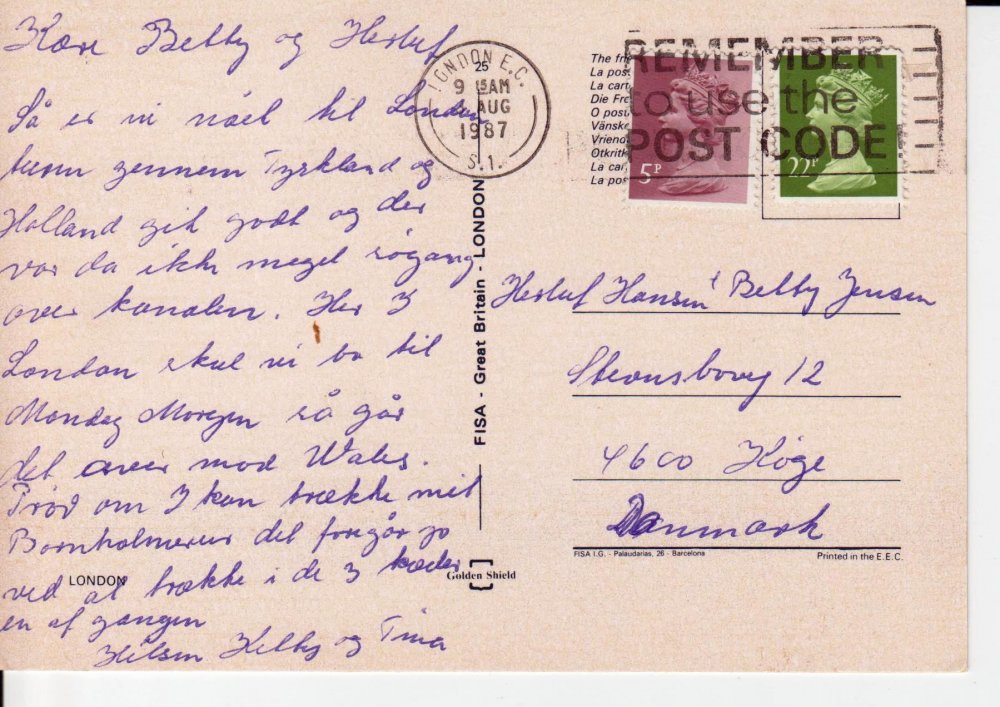 Kære Betty og Herluf
Så er vi nået til London
turen gennem Tyskland og
Holland gik godt og der
var da ikke meget søgang
over kanalen. Her I
London skal vi bo til
Mandag Morgen så går
det over mod Wales.
Prøv om I kan trække mit
Bornholmerur det foregår jo
ved at trække i de 3 kæder
en af gangen
Hilsen Kelby og Tina
LONDON
LONDON E.C.
25
9 15AM
AUG
1987
S.1.
FISA - Great Britain - LONDON
Golden Shield
REMEMBER
to use the
POST CODE
5P
22P
The
La
La
Die
O
Vänske
Vriend
Otkritk
La
La
Herluf Hansen Betty Jensen
12
4600 Køge
Danmark
FISA I.G. - Palaudarias, 26 - Barcelona
Printed in the E.E.C.